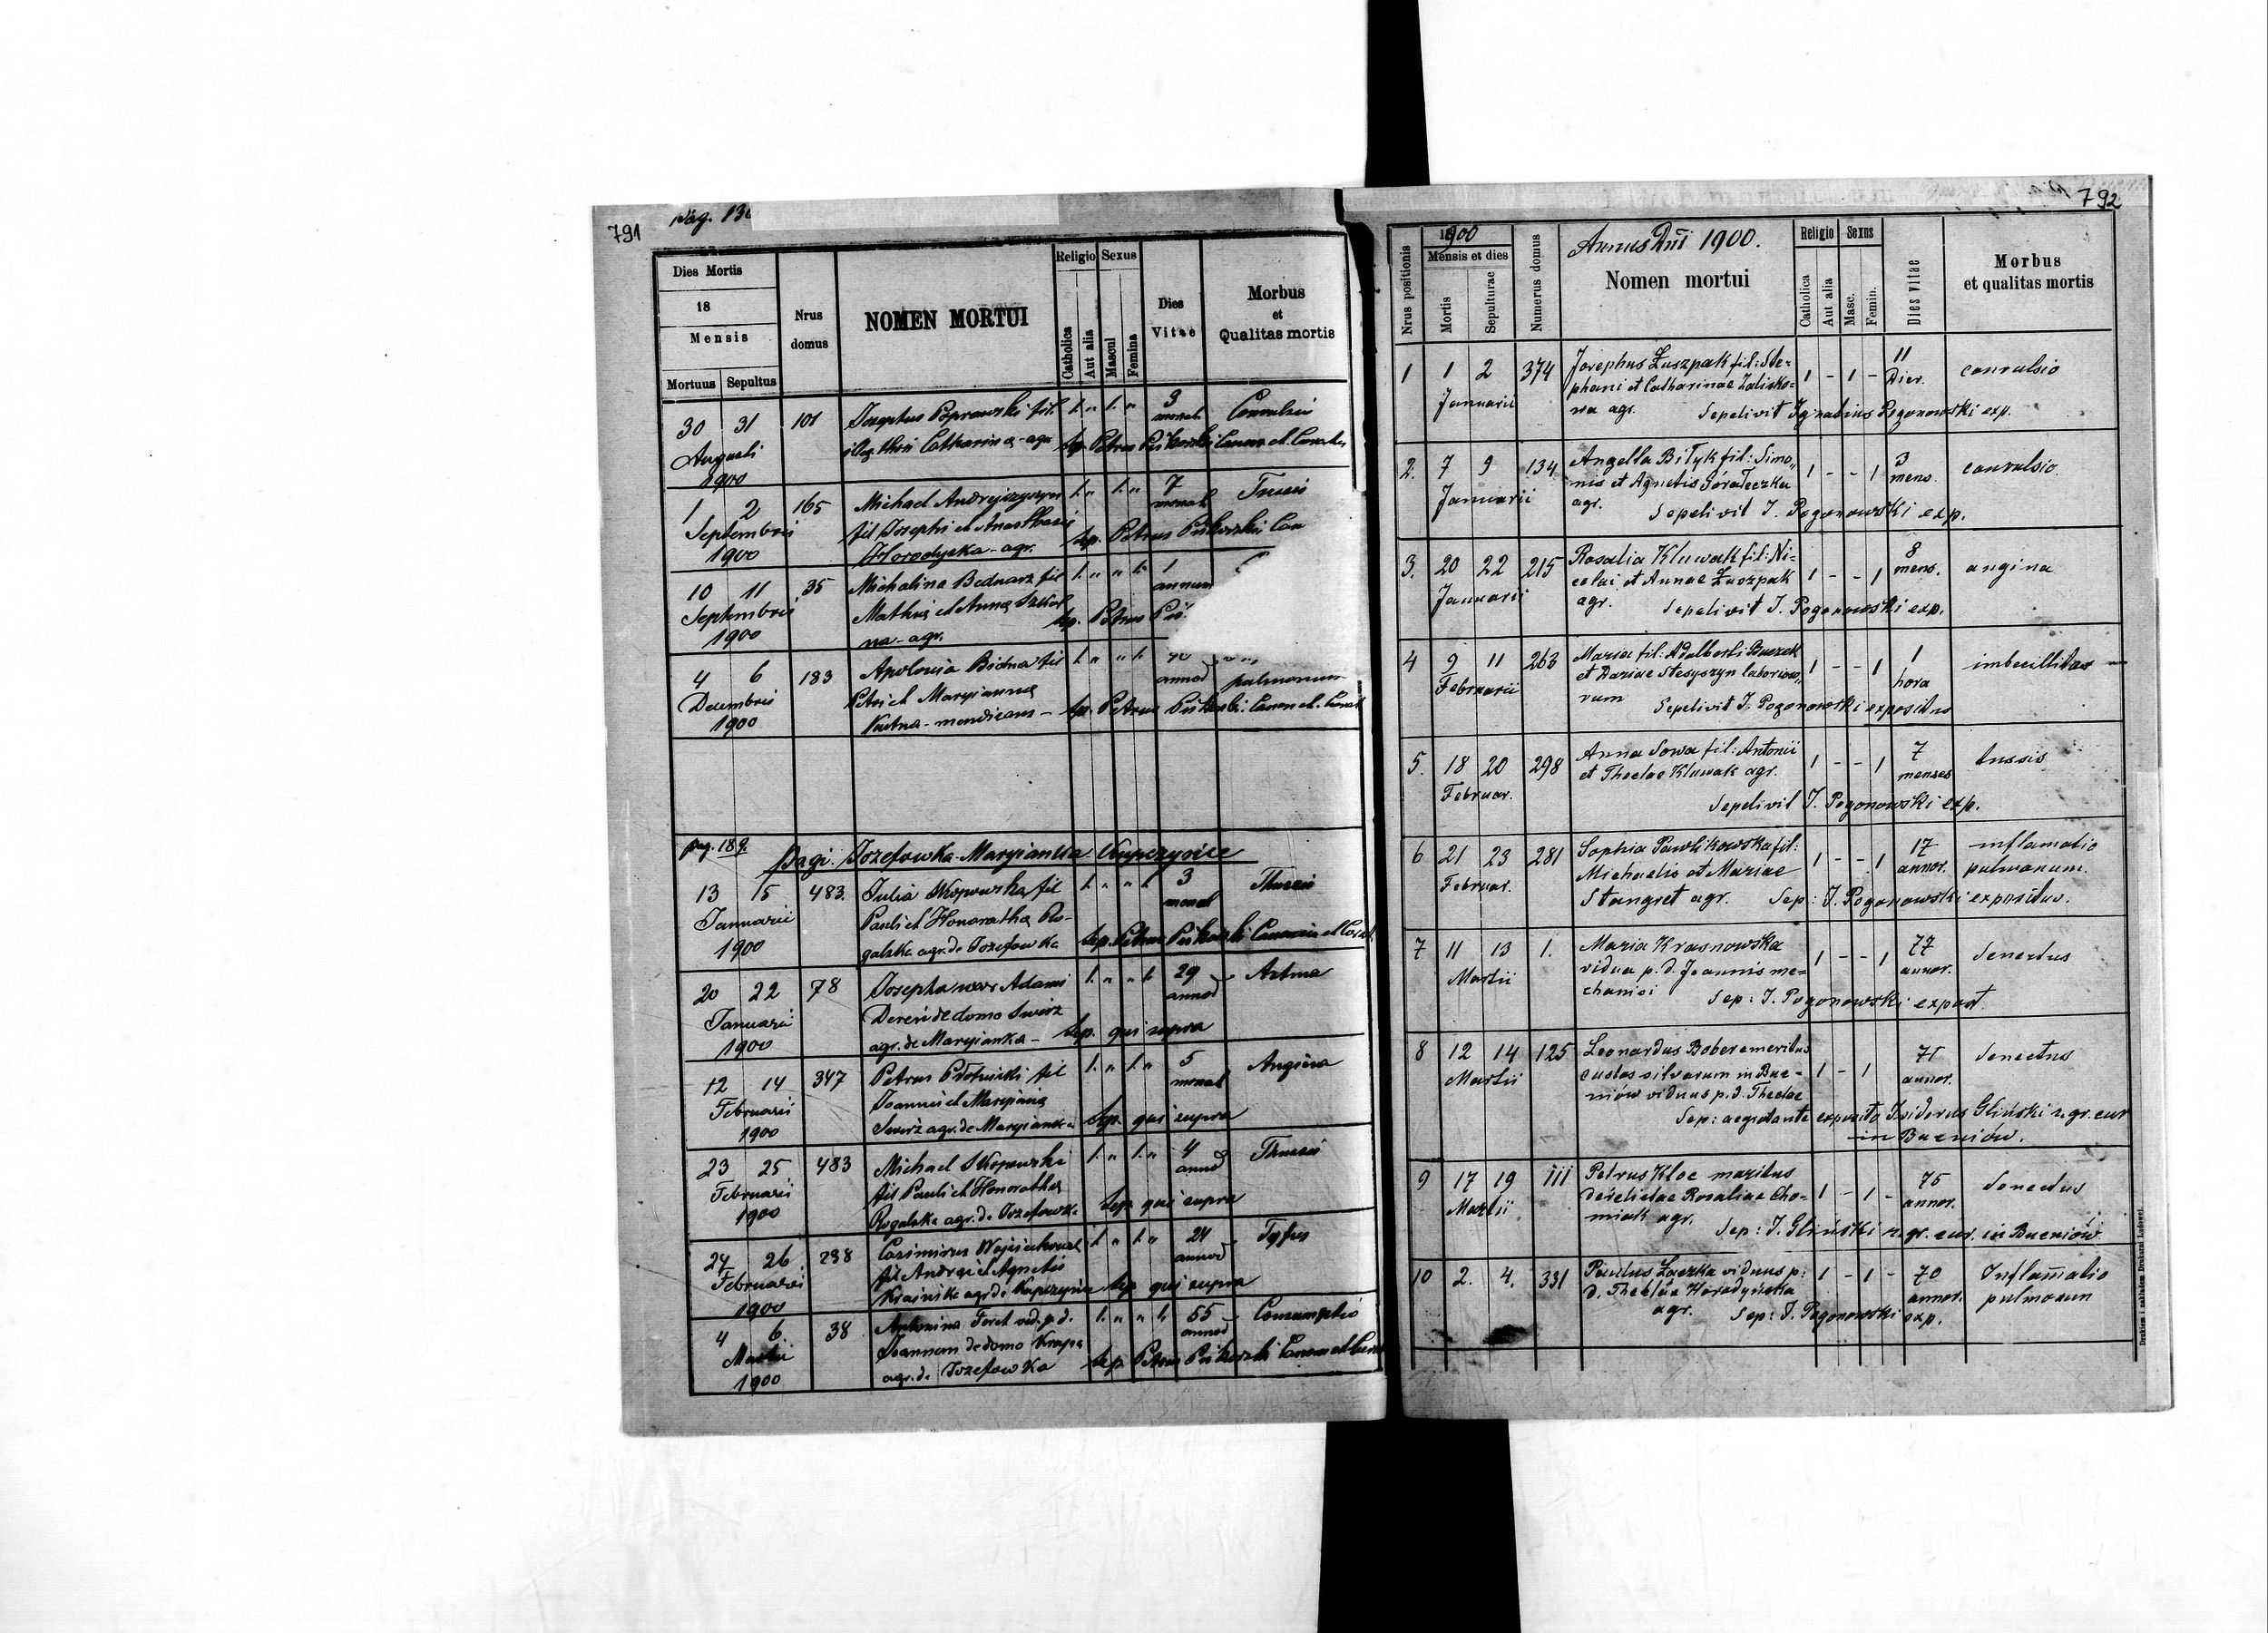 791
pag. 13
Dies Mortis
18
Mensis
Mortuus Sepultus
Nrus domus
NOMEN MORTUI
Religio Sexus
Catholica
Aut alia
Mascul
Femina
Dies Vitae
Morbus et Qualitas mortis
30 31 101 Josephus Poprawski fil. 1. " 1. " 3 Convulsio
Augusti
1900
Catharina - agr. Sep. Petrus
1 2 165 Michael Andrejszyszyn 1. " 1. " 7 Tussis
Septembris fil Josephi et Anasthasie
1900 Horodyska - agr. Sep. Petrus
10 11 35 Michalina Bednarz fil 1. " " 1. 1
Septembris Mathie et Anna annum
1900 na - agr. Sep. Petrus
4 6 183 Apolonia Bidna fil 1. " " 1.
Decembris Petri et Maryianna pulmonum
1900 mendicans - Sep. Petrus
pag. 189.
pagi. Jozefowka - Maryianka - Kupczynce
13 15 483. Julia Skopowska fil 1. " " 1. 3 Thussis
Januarii Pauli et Honoratha Ro-
1900 galska agr. de Jozefowka Sep. Petrus
20 22 78 Josepha uxor Adami 1. " " 1. 29 Astma
Januarii de domo Swierz
1900 agr. de Maryianka - Sep. qui supra
12 14 347 Petrus Plotnicki fil 1. " 1. " 5 Angina
Februarii Joannis et Maryiana
1900 agr. de Maryianka Sep. qui supra
23 25 483 Michael Skopowski 1. " 1. " 4 Thussis
Februarii fil Pauli et Honoratha
1900 Rogalska agr. de Jozefowka Sep. qui supra
24 26. 238 Casimirus 1. " 1. " 24 Tyfus
Februarii fil Andrei et Agnetis
1900 agr. de Kupczynce Sep qui supra
4 6. 38 Antonina Feret vid. p. d. 1. " " 1. 55 Consumptio
Martii Joannem de domo
1900 agr. de Jozefowka Sep. Petrus
792
Nrus positionis
1900
Mensis et dies
Mortis
Sepulturae
Numerus domus
Annus Dni 1900.
Nomen mortui
Religio Sexus
Catholica
Aut alia
Masc.
Femin.
Dies vitae
Morbus et qualitas mortis
1 1 2 374 Josephus Łuszpak fil: Ste= 1 - 1 - 11 Dier. convulsio
Januarii phani et Catharinae Zalisko=
wa agr. Sepelivit Ignatius Pogonowski exp.
2. 7 9 134 Angella Biłyk fil: Simo,, 1 - - 1 3 mens. convulsio
Januarii nis et Agnetis Góraleczka
agr. Sepelivit I. Pogonowski exp.
3. 20 22 215 Rosalia Kluwak fil: Ni= 1 - - 1 8 mens. angina
Januarii colai et Annae Łuszpak
agr. Sepelivit I. Pogonowski exp.
4 9 11 263 Maria fil: Adalberti Buczek 1 - - 1 1 hora imbecillitas
Februarii et Dariae Stesyszyn laborioso,,
rum Sepelivit I. Pogonowski expositus
5. 18 20 298 Anna Sowa fil: Antonii 1 - - 1 7 menses tussis
Februar. et Theclae Kluwak agr.
Sepelivit I. Pogonowski exp.
6 21 23 281 Sophia Pawlikowska fil: 1 - - 1 17 annor. inflamatio
Februar. Michaelis et Mariae pulmonum.
Stangret agr. Sep: I. Pogonowski expositus.
7 11 13 1. Maria Krasnowska 1 - - 1 77 annor. Senectus
Martii vidua p. d. Joannis me=
chanici Sep: I. Pogonowski exposit.
8 12 14 125 Leonardus Bober emeritus 1 - 1 71 annor. Senectus
Martii custos silvarum in Buc-
niów viduus p. d. Theclae
Sep: aegrotante exposito Isidorus Gliński r. gr. cur
in Bucniów.
9 17 19 111 Petrus Kloc maritus 1 - 1 - 75 annor. Senectus
Martii derelictae Rosaliae Cho=
miak agr.
Sep: I. Gliński r. gr. cur. in Bucniów
10 2. 4. 331 Paulus Łaczka viduus p: 1 - 1 - 70 annor. Inflam̄atio
d. Theclae Horodyńska pulmonum
agr. Sep: I. Pogonowski exp.
Drukiem i nakładem Drukarni Ludowej.